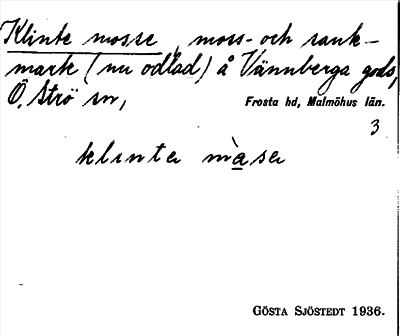 Klinte mosse, moss- och sank-
mark (nu odlad) å Vännberga gods,
Ö. Strö sn, Frosta hd, Malmöhus län.
3
klintə mòsə
GÖSTA SJÖSTEDT 1936.